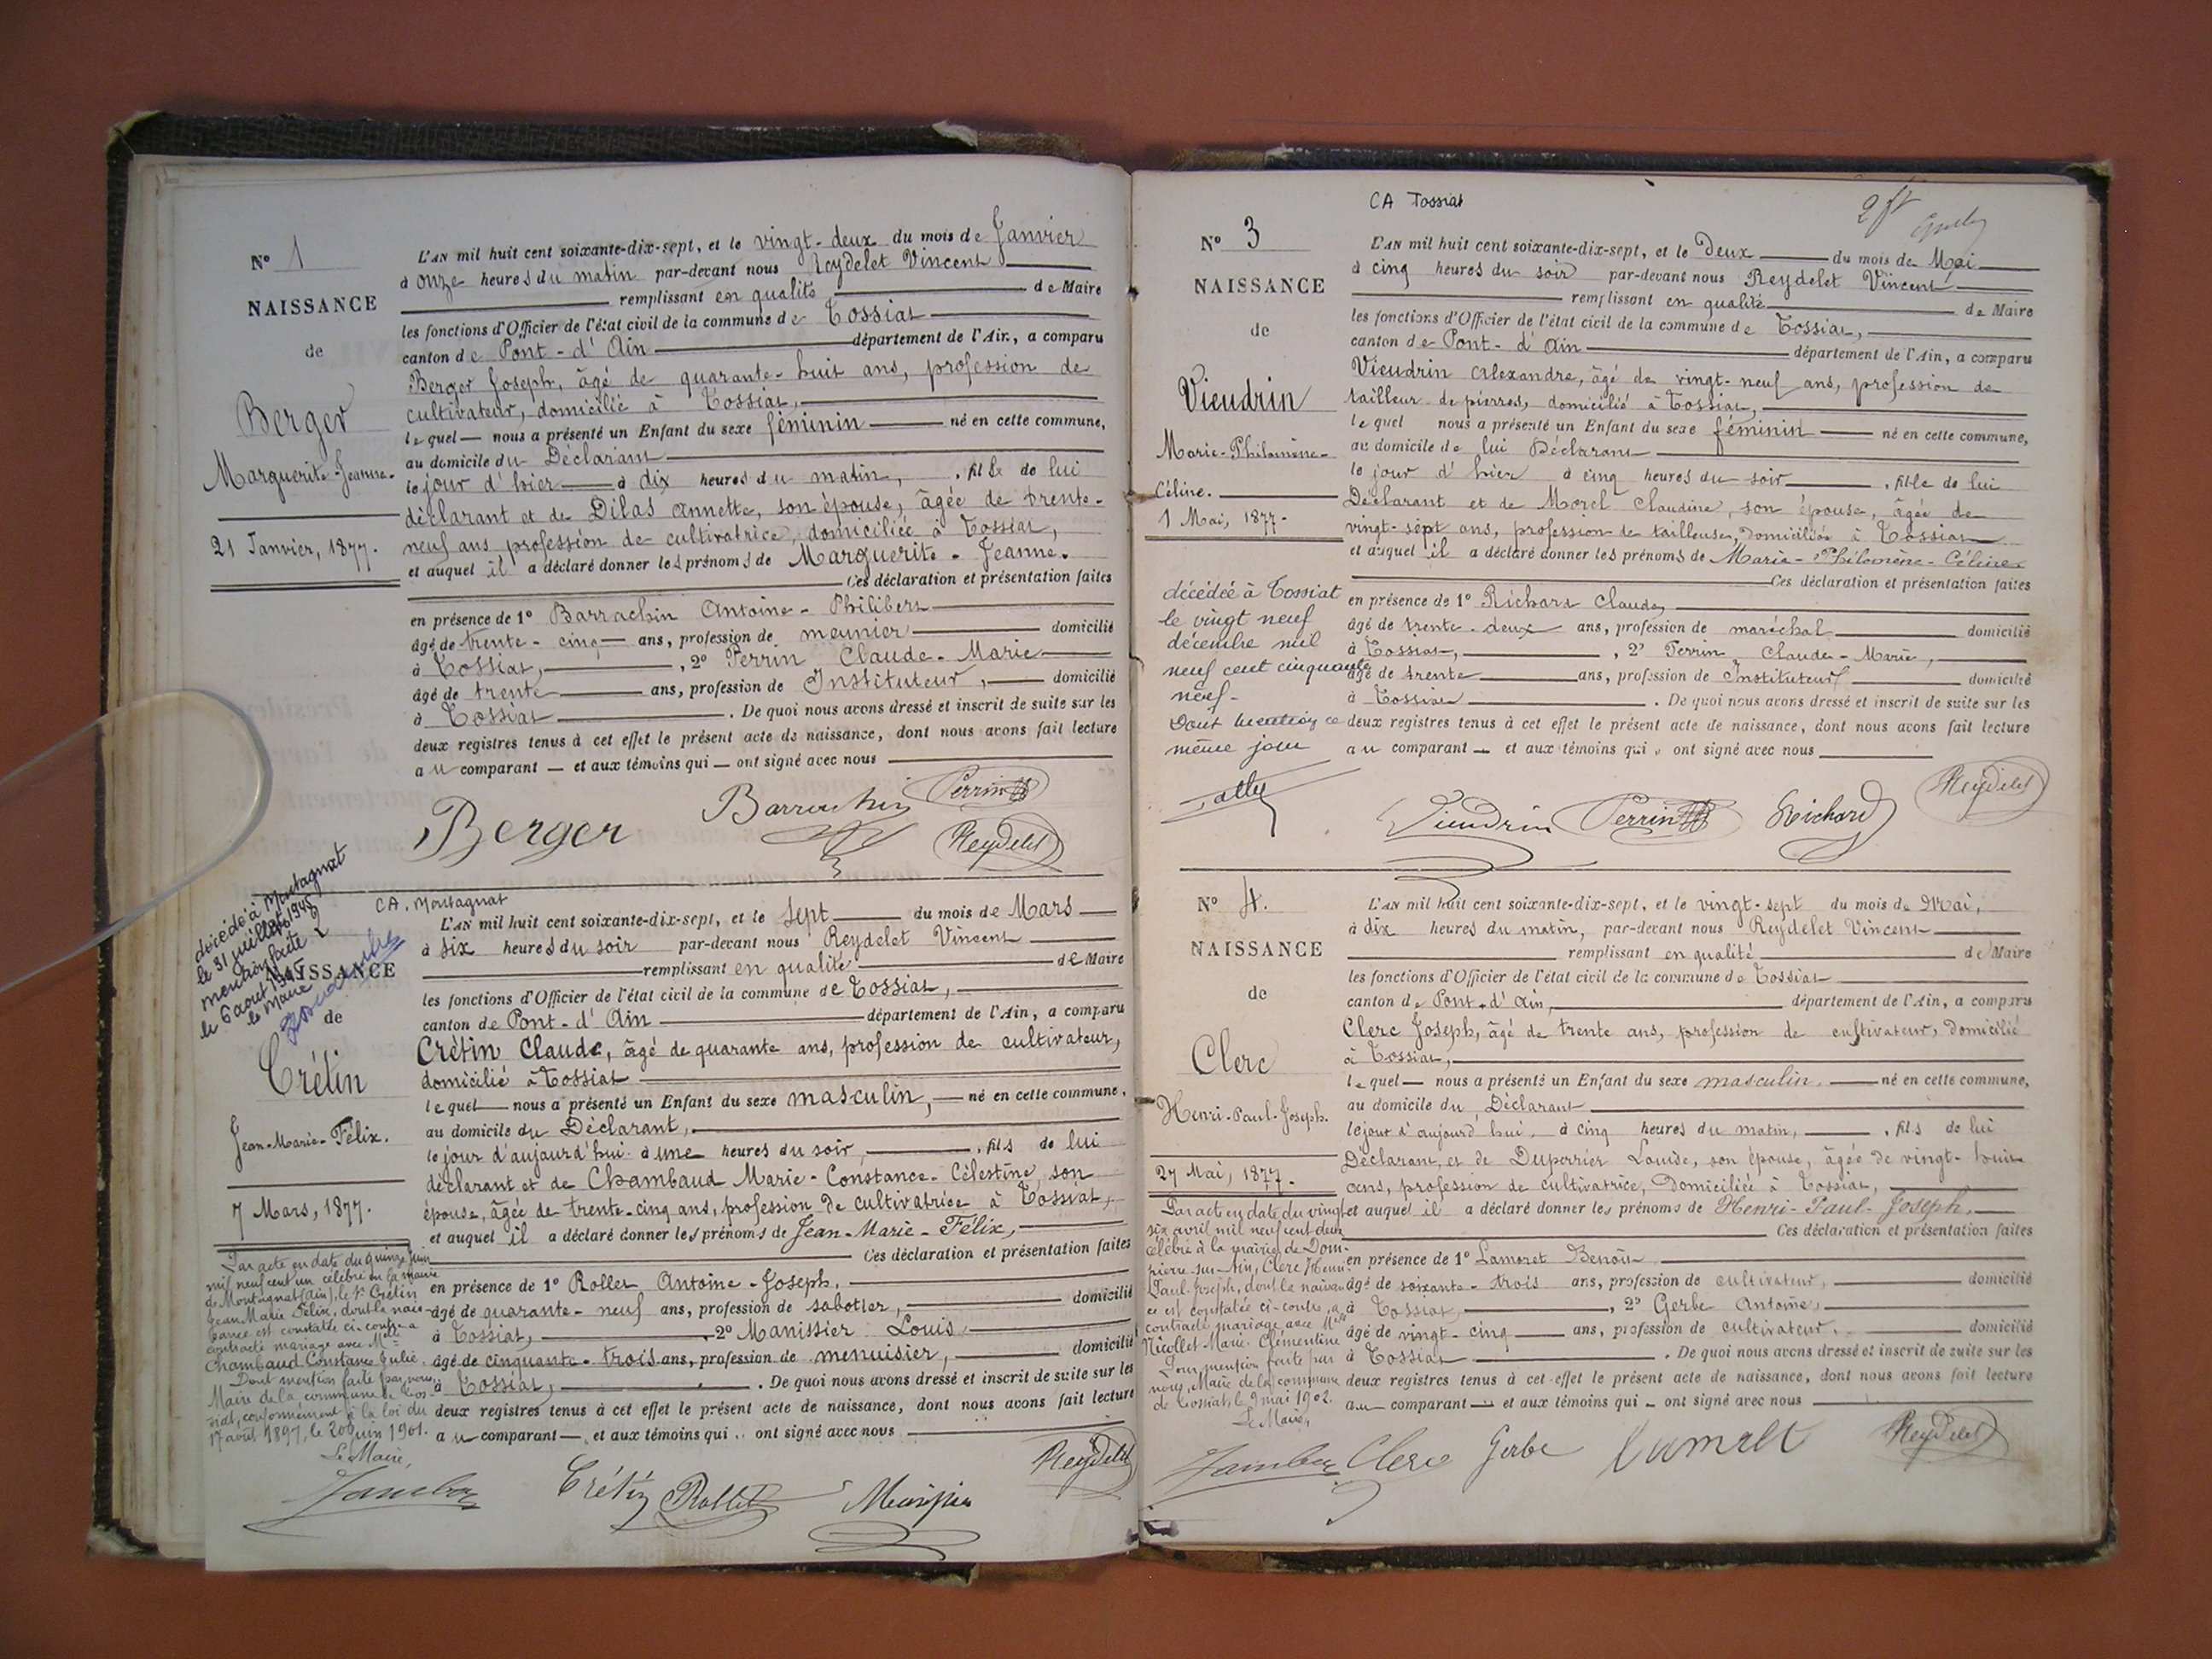 N° 1
NAISSANCE
de
Berger
Marguerite-Jeanne.
21 Janvier, 1877.
L'AN mil huit cent soixante-dix-sept, et le vingt-deux du mois de Janvier
à onze heures du matin par-devant nous Reydelet Vincent
remplissant en qualité de Maire
les fonctions d'Officier de l'état civil de la commune de Tossiat
canton de Pont-d'Ain département de l'Ain, a comparu
Berger Joseph, âgé de quarante-huit ans, profession de
cultivateur, domicilié à Tossiat,
lequel nous a présenté un Enfant du sexe féminin né en cette commune,
au domicile du Déclarant
le jour d'hier à dix heures du matin, , fille de lui
déclarant et de Dilas Annette, son épouse, âgée de trente-
neuf ans profession de cultivatrice, domiciliée à Tossiat,
et auquel il a déclaré donner les prénoms de Marguerite-Jeanne.
Ces déclaration et présentation faites
en présence de 1° Barrachin Antoine-Philibert
âgé de trente-cinq ans, profession de meunier domicilié
à Tossiat, , 2° Perrin Claude-Marie
âgé de trente ans, profession de Instituteur, domicilié
à Tossiat . De quoi nous avons dressé et inscrit de suite sur les
deux registres tenus à cet effet le présent acte de naissance, dont nous avons fait lecture
au comparant et aux témoins qui ont signé avec nous
Berger Barrachin Perrin
Reydelet
décédé à Montagnat
le 31 juillet 1945
mention faite
le 6 août 1945
le Maire
CA. Montagnat
NAISSANCE
de
Crétin
Jean-Marie-Félix.
7 Mars, 1877.
Par acte en date du quinze juin
mil neuf cent un célébré en la mairie
de Montagnat (Ain), le Sr Crétin
Jean Marie Félix, dont la nais-
sance est constatée ci-contre a
contracté mariage avec Mlle
Chambaud Constance Julie.
Dont mention faite par nous
Maire de la commune de Tos-
siat, conformément à la loi du
17 août 1897, le 20 juin 1901.
Le Maire,
L'AN mil huit cent soixante-dix-sept, et le sept du mois de Mars
à six heures du soir par-devant nous Reydelet Vincent
remplissant en qualité de Maire
les fonctions d'Officier de l'état civil de la commune de Tossiat,
canton de Pont-d'Ain département de l'Ain, a comparu
Crétin Claude, âgé de quarante ans, profession de cultivateur,
domicilié à Tossiat
lequel nous a présenté un Enfant du sexe masculin, né en cette commune,
au domicile du Déclarant,
le jour d'aujourd'hui à une heures du soir, , fils de lui
déclarant et de Chambaud Marie-Constance-Célestine, son
épouse, âgée de trente-cinq ans, profession de cultivatrice à Tossiat,
et auquel il a déclaré donner les prénoms de Jean-Marie-Félix,
Ces déclaration et présentation faites
en présence de 1° Rollet Antoine-Joseph,
âgé de quarante-neuf ans, profession de sabotier, domicilié
à Tossiat, , 2° Manissier Louis
âgé de cinquante-trois ans, profession de menuisier, domicilié
à Tossiat, . De quoi nous avons dressé et inscrit de suite sur les
deux registres tenus à cet effet le présent acte de naissance, dont nous avons fait lecture
au comparant et aux témoins qui ont signé avec nous
Crétin Rollet Reydelet
CA Tossiat
N° 3
NAISSANCE
de
Vieudrin
Marie-Philomène-
Céline.
1 Mai, 1877.
décédée à Tossiat
le vingt neuf
décembre mil
neuf cent cinquante
neuf.
Dont mention ce
même jour
L'AN mil huit cent soixante-dix-sept, et le Deux du mois de Mai
à cinq heures du soir par-devant nous Reydelet Vincent
remplissant en qualité de Maire
les fonctions d'Officier de l'état civil de la commune de Tossiat,
canton de Pont-d'Ain département de l'Ain, a comparu
Vieudrin Alexandre, âgé de vingt-neuf ans, profession de
tailleur de pierres, domicilié à Tossiat,
lequel nous a présenté un Enfant du sexe féminin né en cette commune,
au domicile de lui Déclarant
le jour d'hier à cinq heures du soir , fille de lui
Déclarant et de Morel Claudine, son épouse, âgée de
vingt-sept ans, profession de tailleuse, domiciliée à Tossiat
et auquel il a déclaré donner les prénoms de Marie-Philomène-Céline
Ces déclaration et présentation faites
en présence de 1° Richard Claude,
âgé de trente-deux ans, profession de maréchal domicilié
à Tossiat, , 2° Perrin Claude-Marie,
âgé de trente ans, profession de Instituteur domicilié
à Tossiat . De quoi nous avons dressé et inscrit de suite sur les
deux registres tenus à cet effet le présent acte de naissance, dont nous avons fait lecture
au comparant et aux témoins qui ont signé avec nous
Vieudrin Perrin Richard Reydelet
N° 4.
NAISSANCE
de
Clerc
Henri-Paul-Joseph.
27 Mai, 1877.
Par acte en date du vingt
six avril mil neuf cent deux
célébré à la mairie de Dom-
pierre-sur-Ain, Clerc Henri
Paul Joseph, dont la naissan-
ce est constatée ci-contre, a
contracté mariage avec Mlle
Nicollet Marie Clémentine
Pour mention faite par
nous, Maire de la commune
de Tossiat, le 9 mai 1902.
Le Maire,
L'AN mil huit cent soixante-dix-sept, et le vingt-sept du mois de Mai,
à dix heures du matin, par-devant nous Reydelet Vincent
remplissant en qualité de Maire
les fonctions d'Officier de l'état civil de la commune de Tossiat
canton de Pont-d'Ain, département de l'Ain, a comparu
Clerc Joseph, âgé de trente ans, profession de cultivateur, domicilié
à Tossiat,
lequel nous a présenté un Enfant du sexe masculin, né en cette commune,
au domicile du Déclarant
le jour d'aujourd'hui, à cinq heures du matin, , fils de lui
Déclarant, et de Duperrier Louise, son épouse, âgée de vingt-huit
ans, profession de cultivatrice, Domiciliée à Tossiat,
et auquel il a déclaré donner les prénoms de Henri-Paul-Joseph,
Ces déclaration et présentation faites
en présence de 1° Lamoret Benoît
âgé de soixante-trois ans, profession de cultivateur, domicilié
à Tossiat, , 2° Gerbe Antoine,
âgé de vingt-cinq ans, profession de cultivateur, domicilié
à Tossiat . De quoi nous avons dressé et inscrit de suite sur les
deux registres tenus à cet effet le présent acte de naissance, dont nous avons fait lecture
au comparant et aux témoins qui ont signé avec nous
Clerc Gerbe Reydelet